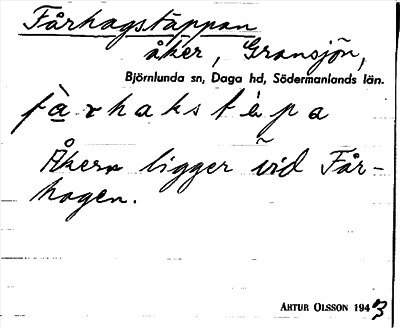 Fårhagstäppan
åker, Gransjön,
Björnlunda sn, Daga hd, Södermanlands län.
fàrhakstèpa
Åkern ligger vid Får-
hagen.
ARTUR OLSSON 1943